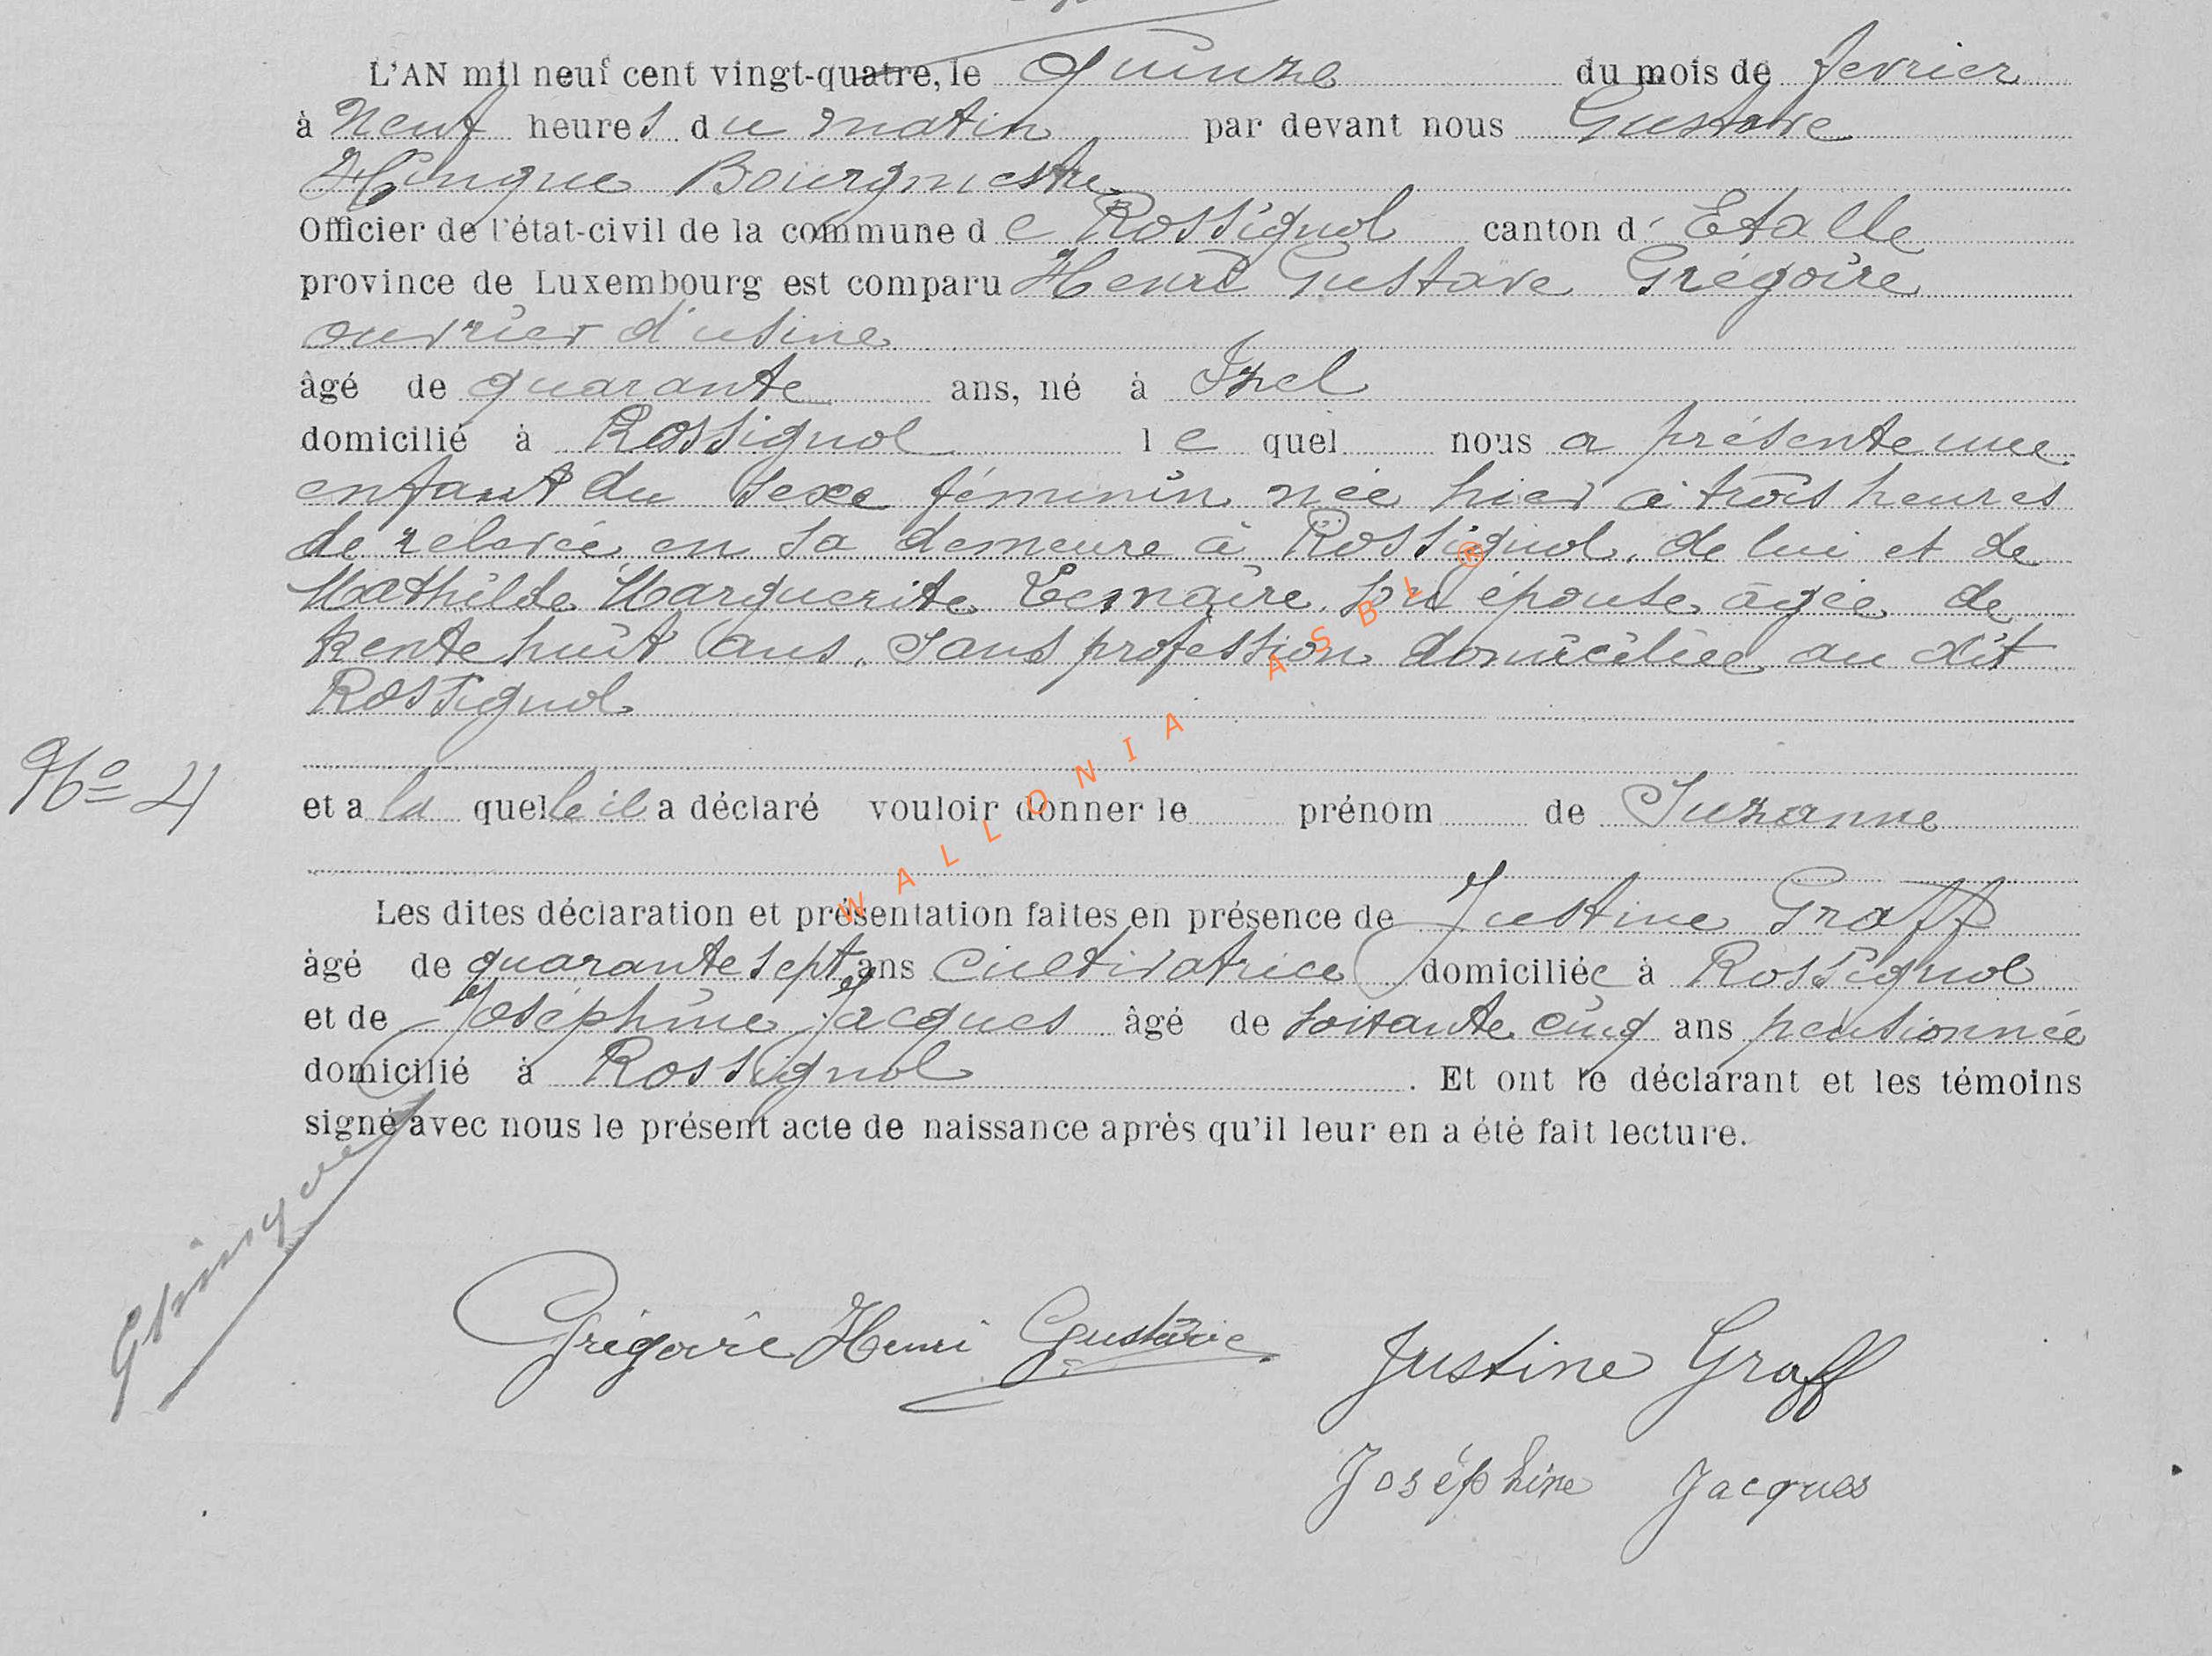 L'AN mil neuf cent vingt-quatre, le quinze du mois de fevrier
à neuf heures du matin par devant nous Gustave
Hinque Bourgmestre
Officier de l'état-civil de la commune de Rossignol canton d'Etalle
province de Luxembourg est comparu Henri Gustave Grégoire
ouvrier d'usine
âgé de quarante ans, né à Izel
domicilié à Rossignol lequel nous a présenté une
enfant du sexe féminin née hier à trois heures
de relevée en sa demeure à Rossignol, de lui et de
Mathilde Marguerite Lemaire son épouse âgée de
trente huit ans, sans profession domiciliée au dit
Rossignol
No 4
et a la quelle il a déclaré vouloir donner le prénom de Suzanne
Les dites déclaration et présentation faites en présence de Justine Graff
âgé de quarante sept ans cultivatrice domiciliée à Rossignol
et de Joséphine Jacques âgé de soixante cinq ans pensionnée
domicilié à Rossignol. Et ont le déclarant et les témoins
signé avec nous le présent acte de naissance après qu'il leur en a été fait lecture.
Grégoire Henri Gustave
Justine Graff
Joséphine Jacques
WALLONIA ASBL ®